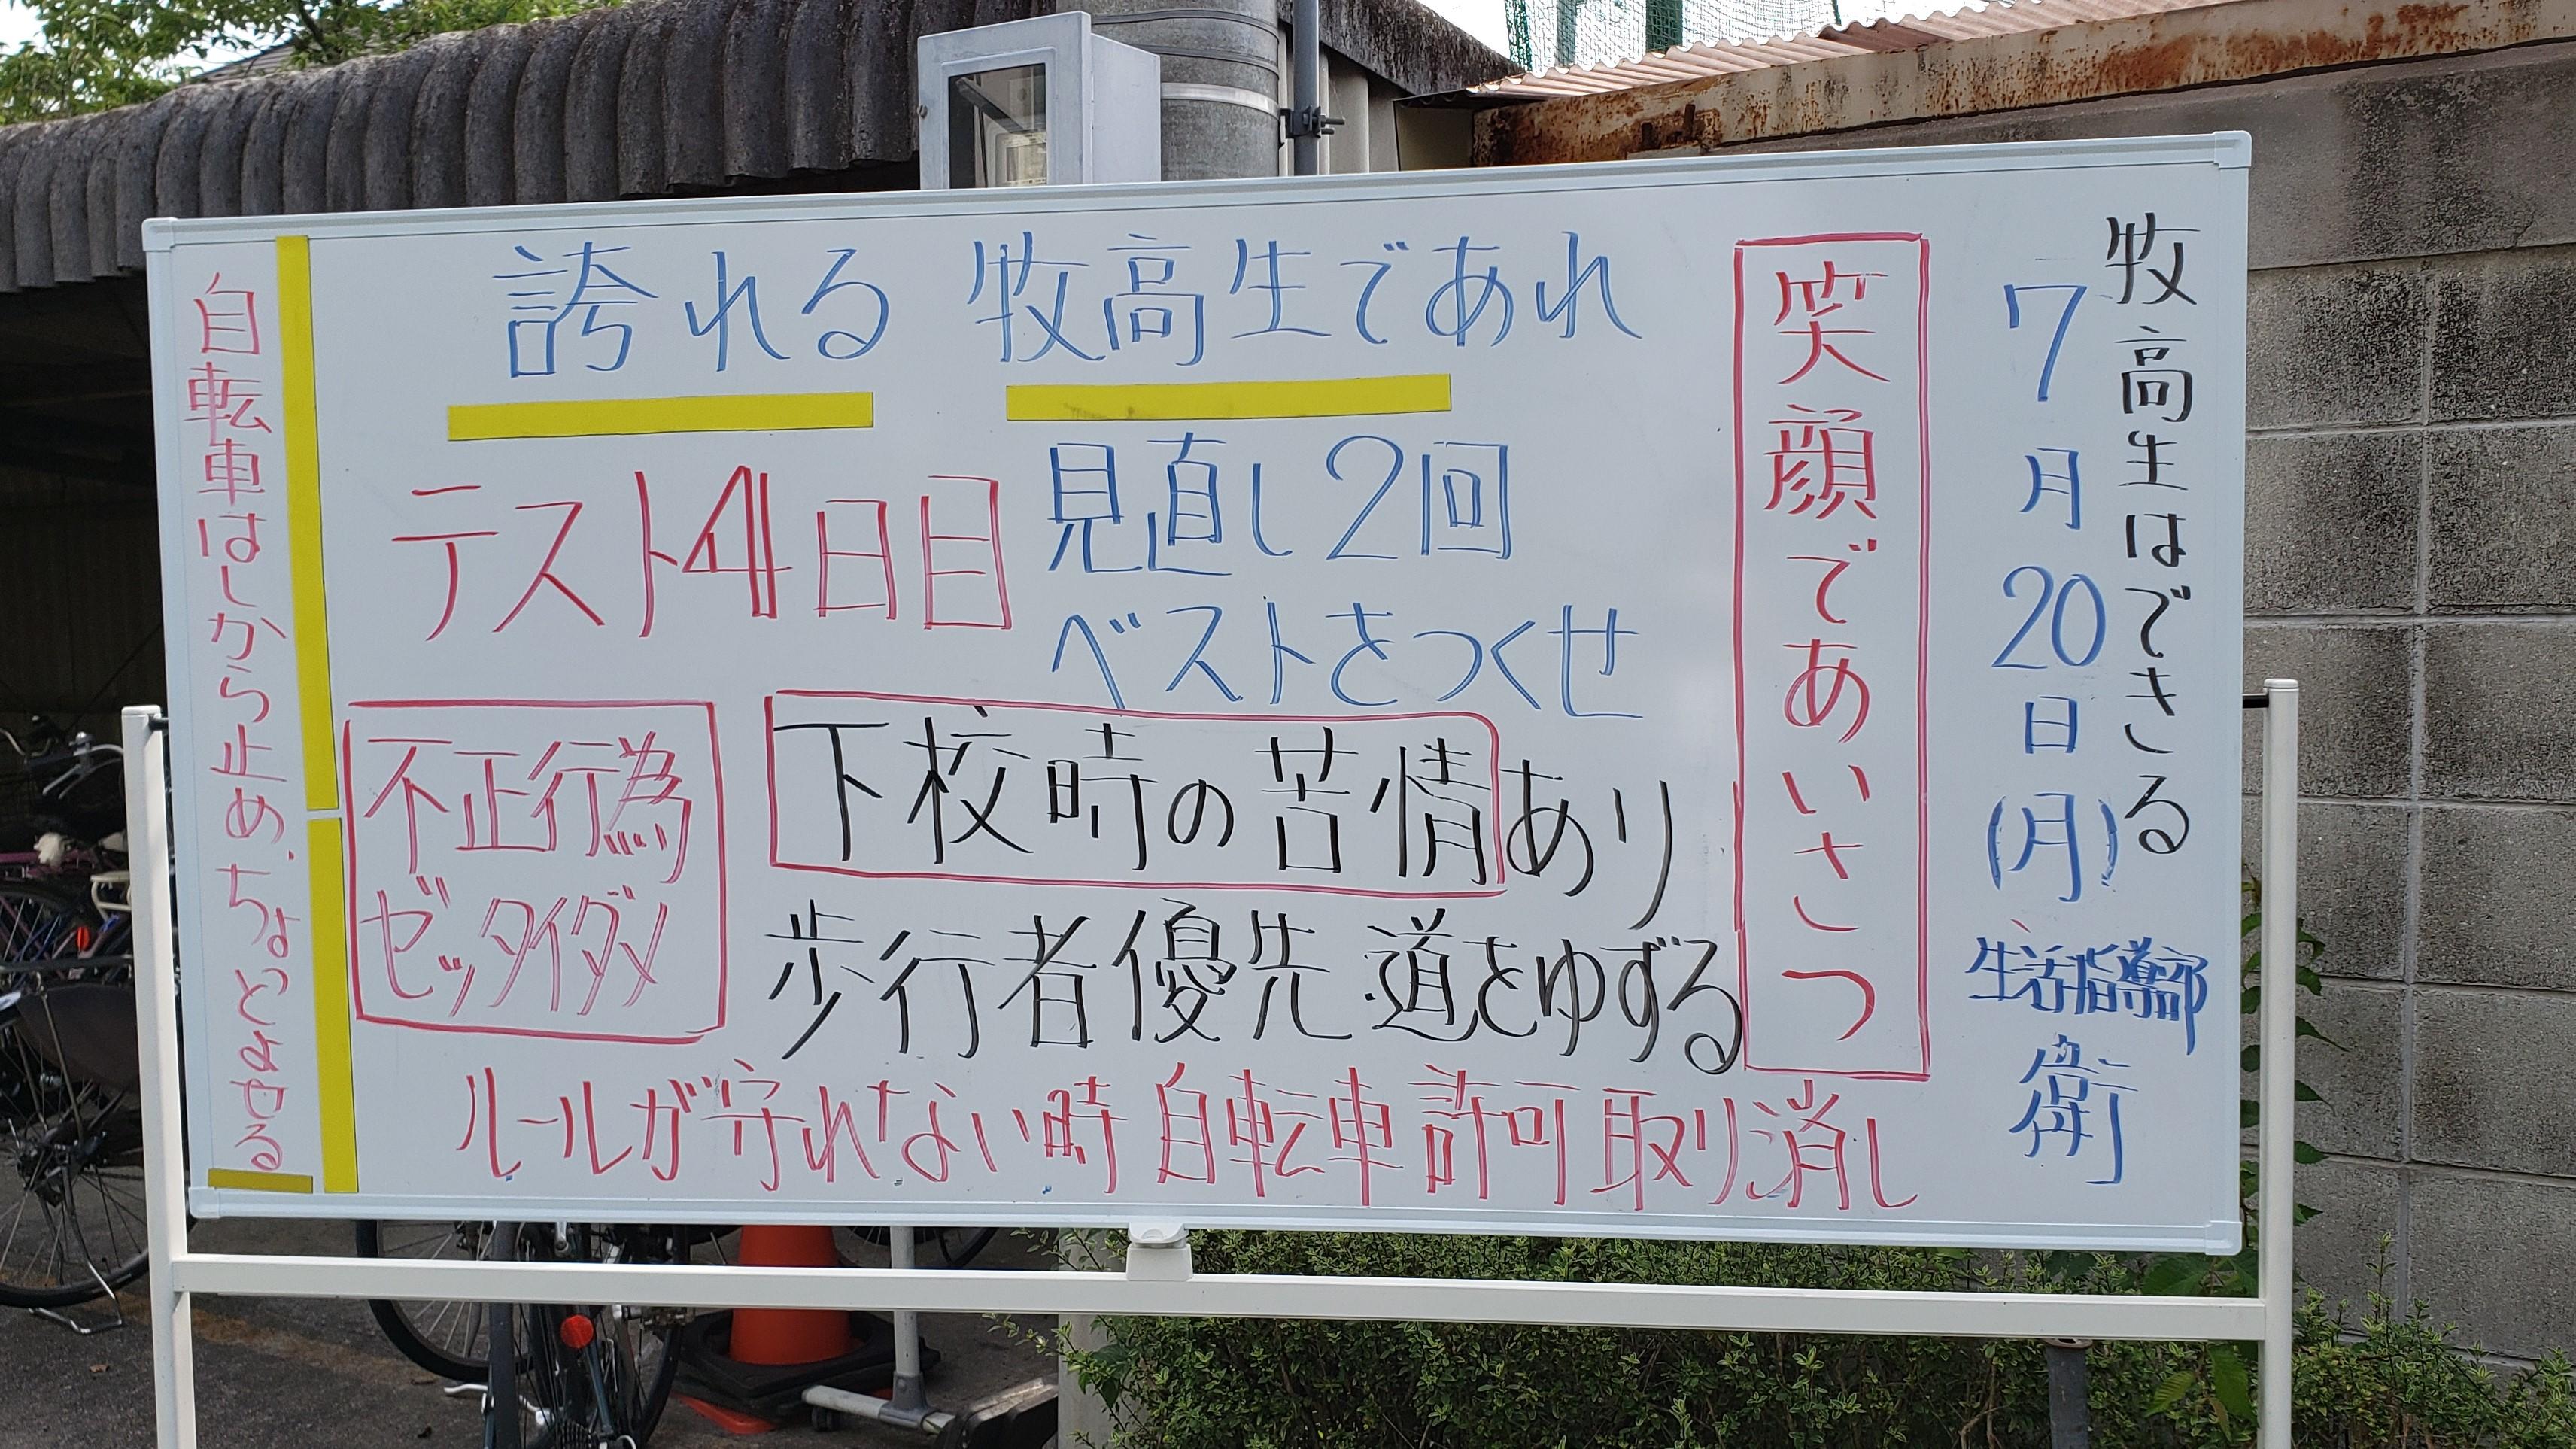 牧高生はできる
7月20日(月)
生活指導部
衛
笑顔であいさつ
誇れる 牧高生であれ
テスト4日目
見直し2回
ベストをつくせ
不正行為
ゼッタイダメ
下校時の苦情あり
歩行者優先 道をゆずる
ルールが守れない時 自転車 許可 取り消し
自転車はしから止め、ちょっとよせる